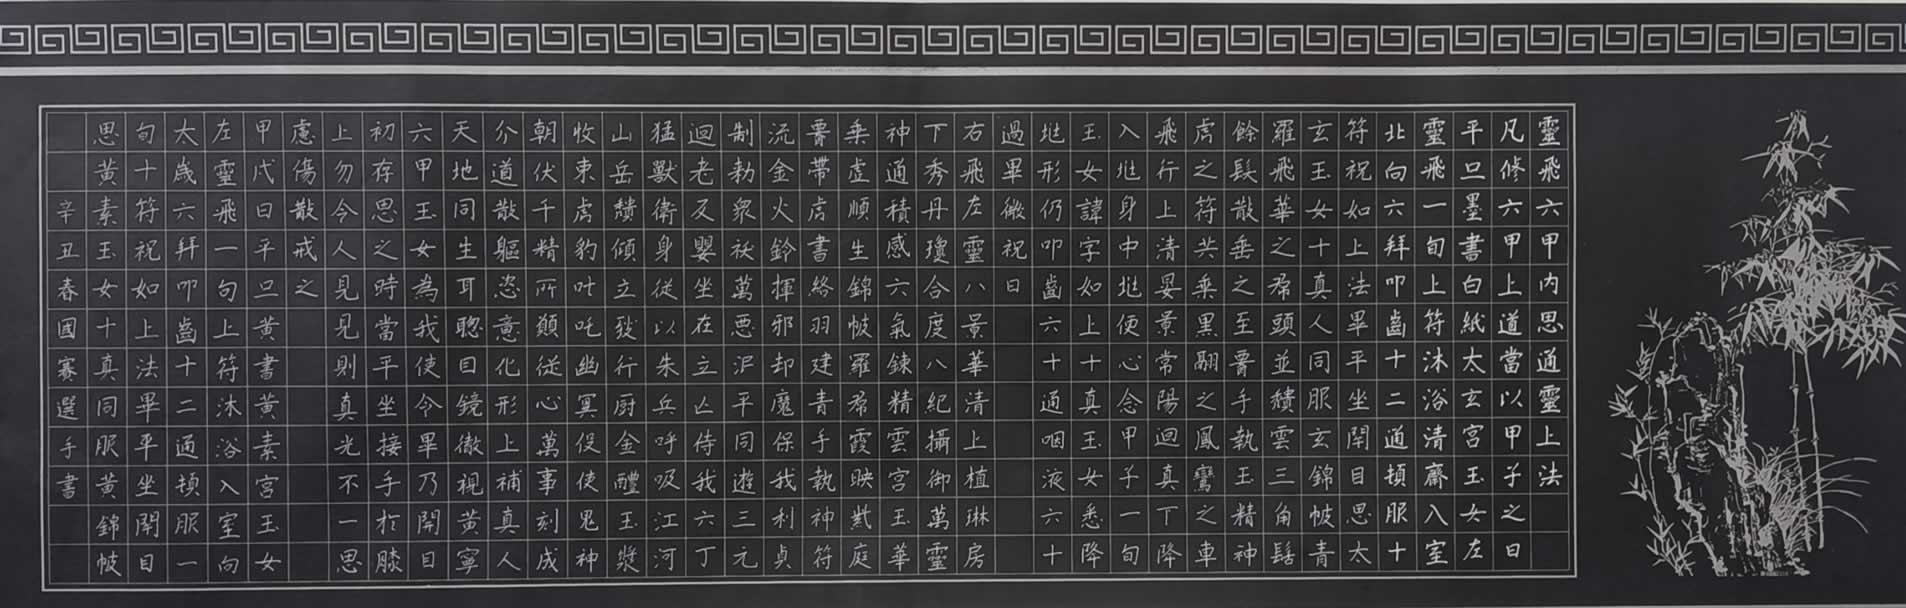 靈飛六甲内思通靈上法
凡修六甲上道當以甲子之日
平旦墨書白紙太玄宮玉女左
靈飛一旬上符沐浴清齋入室
北向六拜叩齒十二通頓服十
符祝如上法畢平坐閉目思太
玄玉女十真人同服玄錦帔青
羅飛華之帬頭並頹雲三角髻
餘髮散垂之至胷手執玉精神
虎之符共乘黑翮之鳳鸞之車
飛行上清晏景常陽迴真下降
入垗身中垗便心念甲子一旬
玉女諱字如上十真玉女悉降
垗形仍叩齒六十通咽液六十
過畢微祝曰
右飛左靈八景華清上植琳房
下秀丹瓊合度八紀攝御萬靈
神通積感六氣錬精雲宮玉華
乘虛順生錦帔羅帬霞映紫庭
胷帶虎書絡羽建青手執神符
流金火鈴揮邪却魔保我利貞
制勑衆祅萬惡泯平同遊三元
迴老反嬰坐在立亡侍我六丁
猛獸衛身從以朱兵呼吸江河
山岳頹傾立致行厨金醴玉漿
收束虎豹叱吒幽冥役使鬼神
朝伏千精所願從心萬事刻成
介道散軀恣意化形上補真人
天地同生耳聰目鏡徹視黃寧
六甲玉女為我使令畢乃開目
初存思之時當平坐接手於膝
上勿令人見見則真光不一思
慮傷散戒之
甲戌日平旦黃書黃素宮玉女
左靈飛一旬上符沐浴入室向
太歲六拜叩齒十二通頓服一
旬十符祝如上法畢平坐閉目
思黃素玉女十真同服黃錦帔
辛丑春國賽選手書